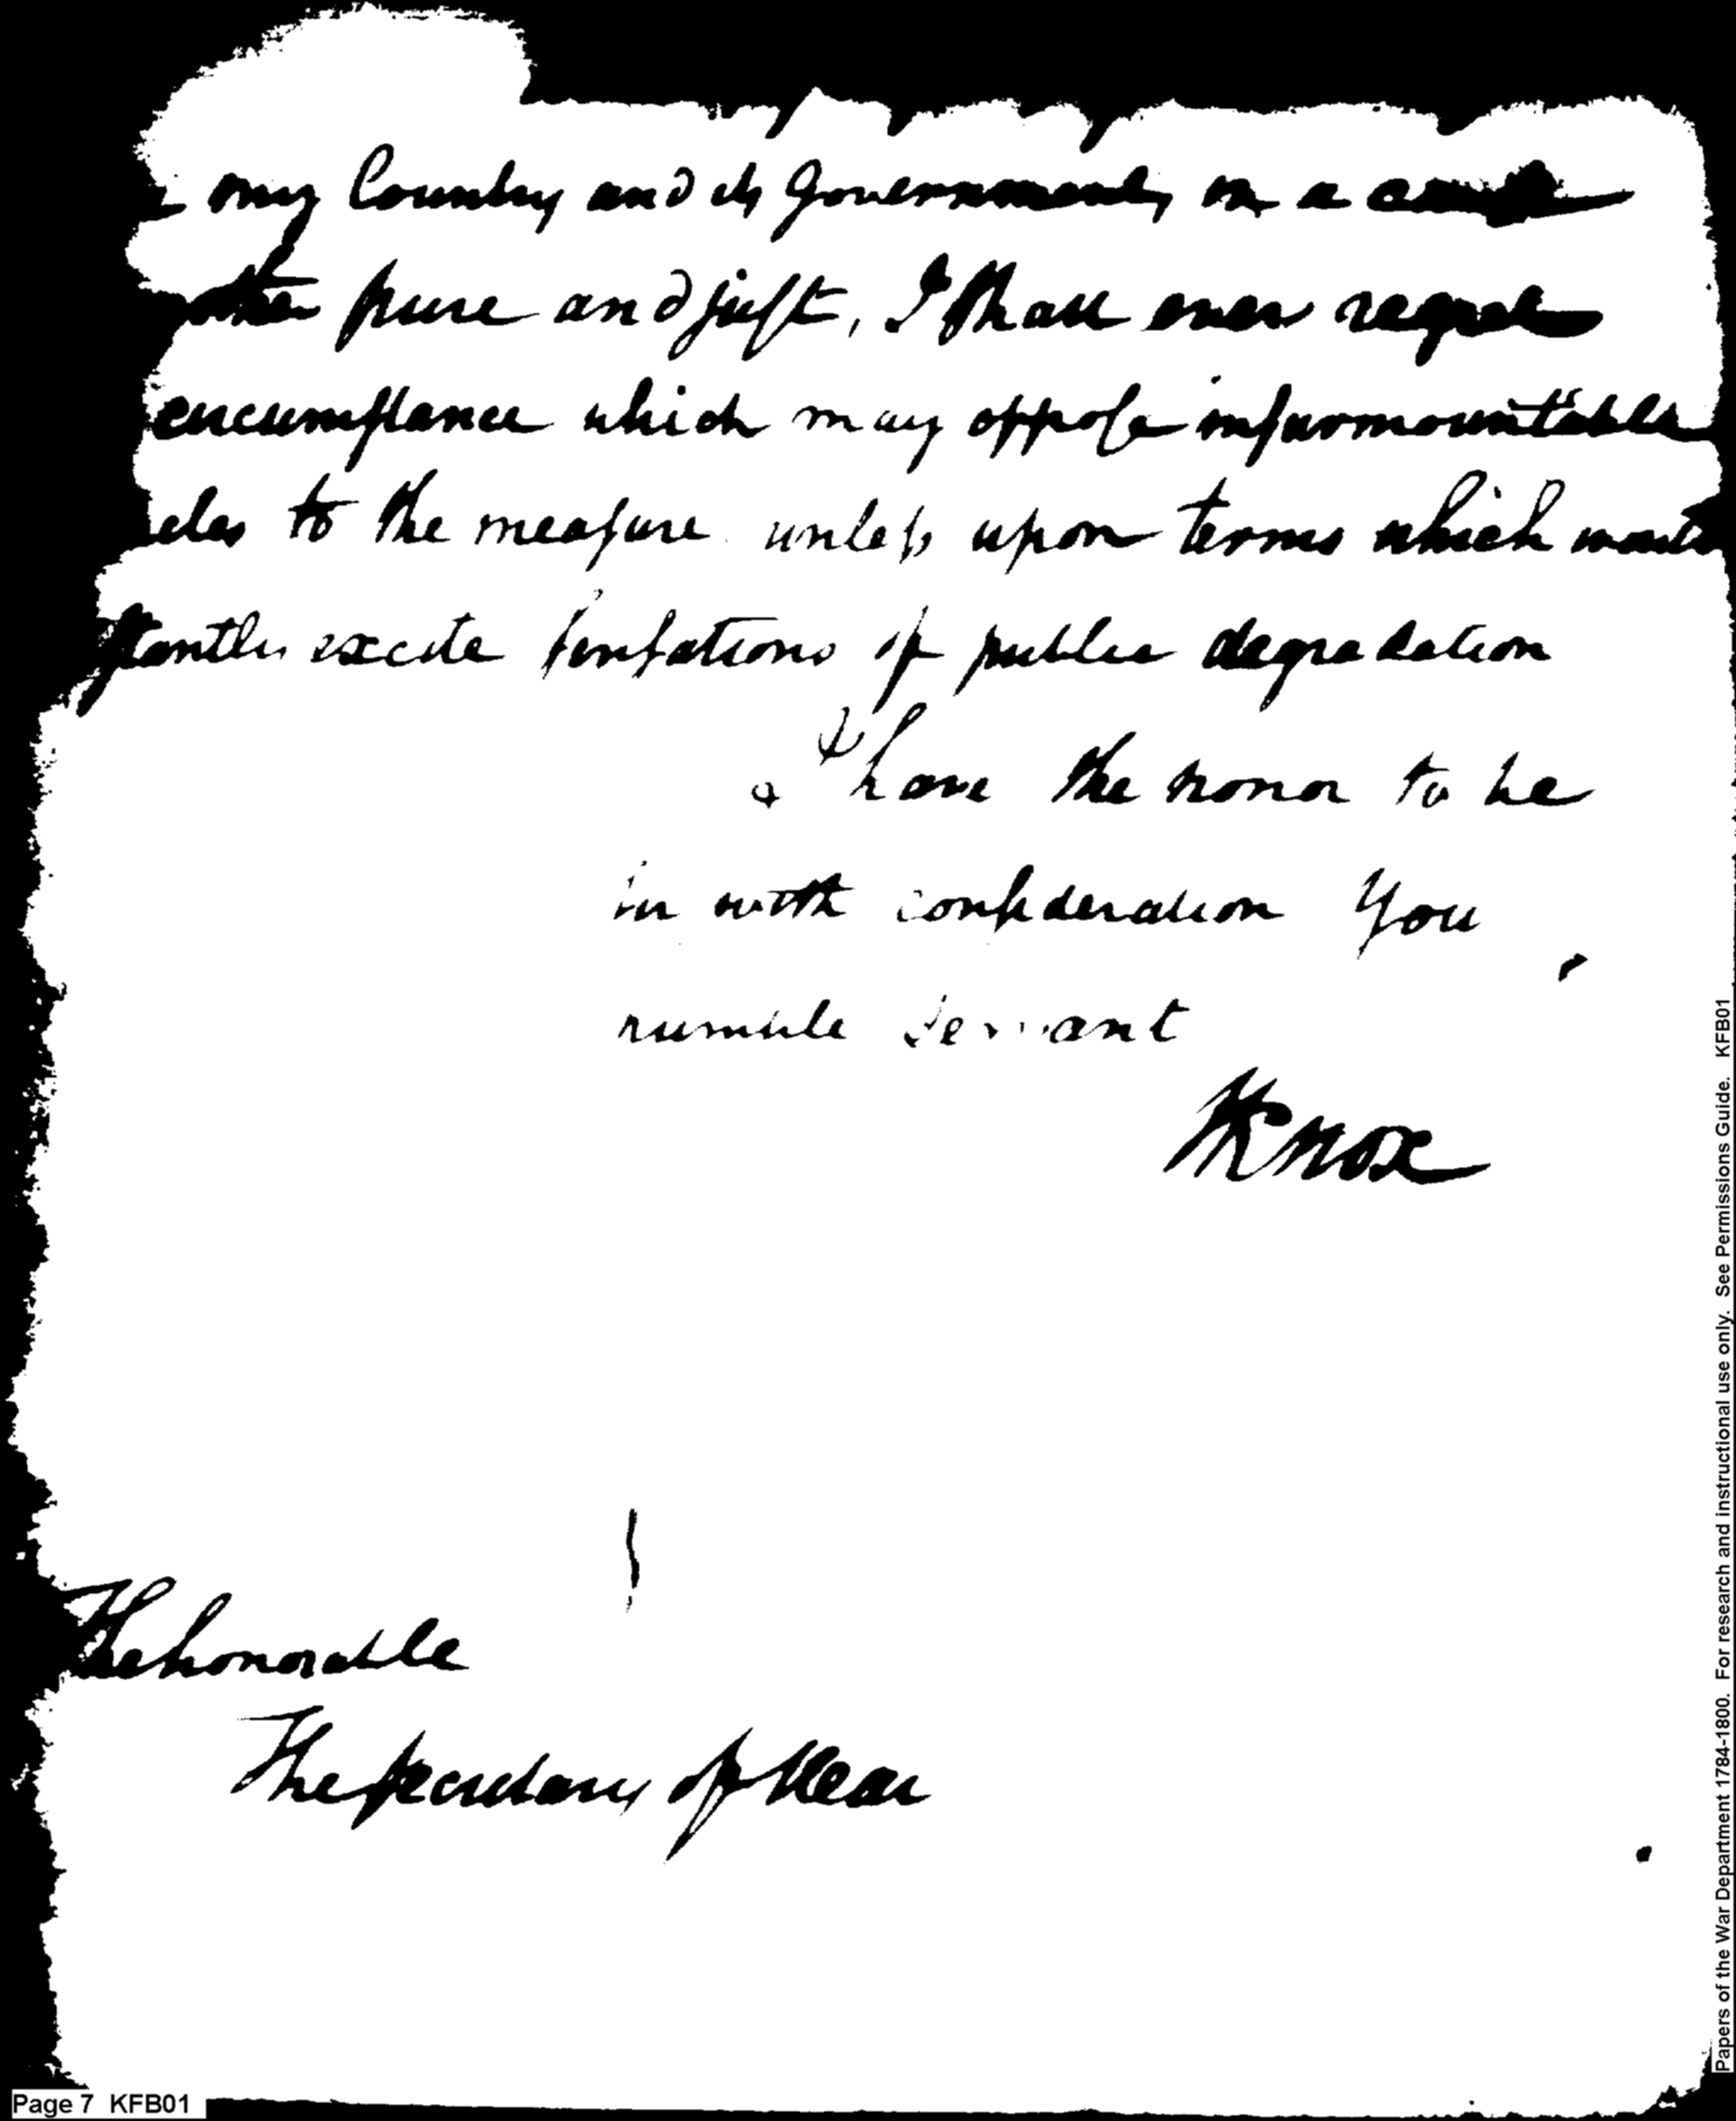 my Country and its Government, in a cause
pure and just, I shall ever regret
circumstance which may oppose insurmountable
cles to the measure unless upon terms which would
stantly excite sensations of public degradation
I have the honor to be
in with consideration You
humble servant
Knox
The honorable
The secretary of War
Page 7 KFB01
Papers of the War Department 1784-1800. For research and instructional use only. See Permissions Guide. KFB01